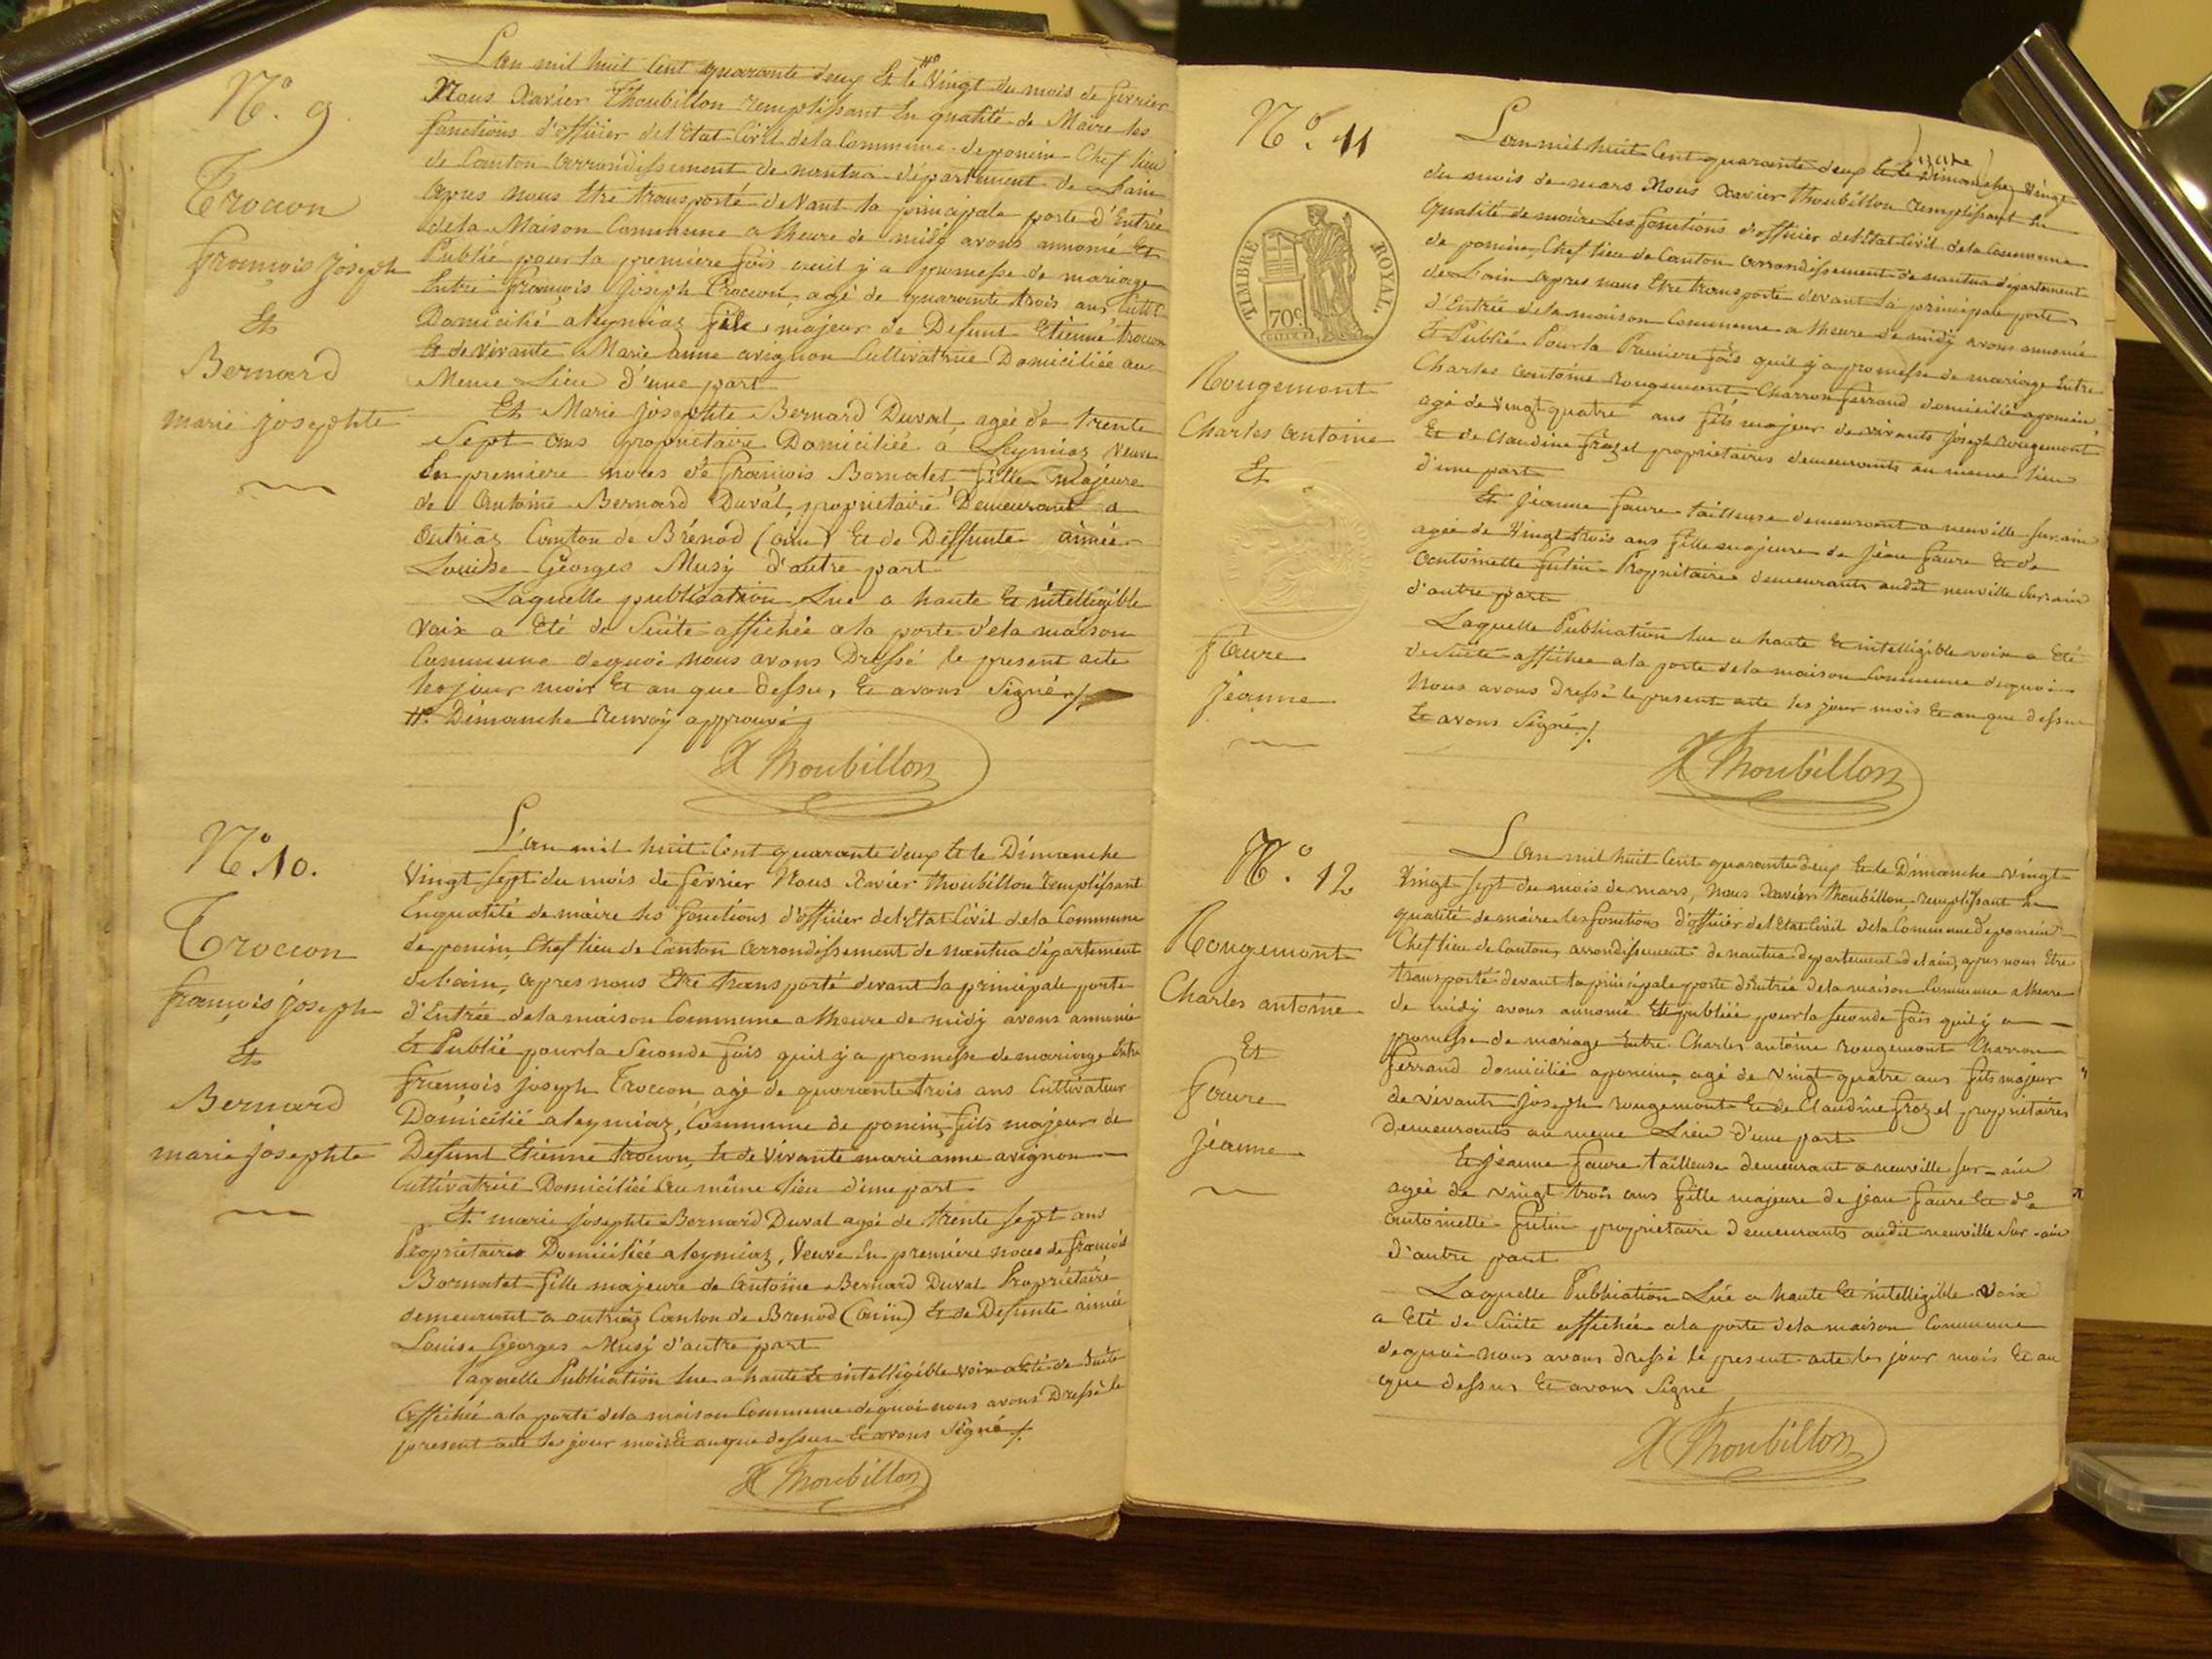 N.° 9.
Troccon
françois joseph
Et
Bernard
marie josephte
L'an mil huit Cent quarante deux Et le #° Vingt du mois de fevrier
Nous Xavier Thoubillon remplissant En qualité de Maire les
fonctions d'officier del'Etat Civil dela Commune deponcin Chef lieu
de Canton arrondissement de nantua département de Lain
apres nous Etre transporté deVant la principale porte d'Entrée
dela Maison Commune a lheure de midy avons annoncé Et
Publié pour la premiere fois quil y a promesse de mariage
Entre françois joseph Troccon, agé de quarante trois ans Cultr
Domicilié aleymiaz fils majeur de Defunt Etienne troccon
Et de vivante Marie anne avignon Cultivatrice Domiciliée au
Meme Lieu d'une part
Et Marie josephte Bernard Duval, agée de trente
Sept ans propriétaire Domiciliée à Leymiaz Veuve
En premiere noces de françois Bornatet fille majeure
de antoine Bernard Duval, propriétaire Demeurant a
outriaz Canton de Brénod (ain) Et de Deffunte aimée
Louise Georges Musy d'autre part
Laquelle publication Lue a haute Et intelligible
Voix a Eté de Suite affichée ala porte dela maison
Commune dequoi Nous avons Dressé le present acte
les jour mois Et an que dessus, Et avons Signé./.
#° Dimanche renvoy approuvé
X Thoubillon
N.° 10.
Troccon
françois joseph
Et
Bernard
marie josephte
L'an mil huit Cent quarante deux Et le Dimanche
Vingt Sept du mois de fevrier Nous Xavier thoubillon remplissant
En qualité de maire les fonctions d'officier del'Etat Civil dela Commune
de poncin, Chef lieu de Canton arrondissement de nantua département
delain, apres nous Etre transporté devant la principale porte
d'Entrée dela maison Commune a lheure de midy avons annoncé
Et Publié pour la Seconde fois quil y a promesse de mariage Entre
françois joseph Troccon agé de quarante trois ans Cultivateur
Domicilié aleymiaz, Commune de poncin, fils majeur de
Defunt Etienne troccon, Et de Vivante marie anne avignon
Cultivatrice Domiciliée au même lieu d'une part
Et marie josephte Bernard Duval agée de trente sept ans
Propriétaire Domiciliée aleymiaz, Veuve En premiere noces de françois
Bornatet fille majeure de antoine Bernard Duval Propriétaire
demeurant a outriaz Canton de Brenod (ain) Et de Defunte aimée
Louise Georges Musy d'autre part
laquelle Publication lue a haute Et intelligible voix a Eté de Suite
affichée ala porte dela maison Commune dequoi nous avons Dressé le
present acte les jour mois Et an que dessus Et avons Signé./.
X Thoubillon
N.° 11
TIMBRE ROYAL.
70c
Rougemont
Charles antoine
Et
faure
jeanne
L'an mil huit Cent quarante deux Et le Dimanche Vingt
du mois de mars Nous Xavier thoubillon remplissant En
qualité de maire Les fonctions d'officier del'Etat Civil dela Commune
de poncin, Chef lieu de Canton arrondissement de nantua département
de Lain apres nous Etre transporté devant la principale porte
d'Entrée dela maison Commune a lheure de midy avons annoncé
Et Publié Pour la Premiere fois quil y a promesse de mariage Entre
Charles antoine rougemont Charron ferrand domicilié aponcin
agé de Vingt quatre ans fils majeur de vivants joseph rougemont
Et de Claudine frazet propriétaires demeurants au meme lieu
d'une part
Et jeanne faure tailleuse demeurant a neuville sur ain
agée de Vingt trois ans fille majeure de jean faure Et de
antoinette futin Propriétaires demeurants audit neuville Sur ain
d'autre part
Laquelle Publication lue a haute Et intelligible voix a Eté
de Suite affichée ala porte dela maison Commune dequoi
Nous avons Dressé le present acte les jour mois Et an que dessus
Et avons Signé./.
X Thoubillon
N.° 12
Rougemont
Charles antoine
Et
faure
jeanne
L'an mil huit Cent quarante deux Et le Dimanche vingt
Vingt Sept du mois de mars, Nous Xavier Thoubillon, remplissant En
qualité de maire les fonctions d'officier del'Etat Civil dela Commune de poncin
Chef lieu de Canton, arrondissement de nantua departement delain, apres nous Etre
transporté devant la principale porte d'Entrée dela maison Commune a lheure
de midy avons annoncé Et publiée pour la Seconde fois quil y a
promesse de mariage Entre Charles antoine rougemont Charron
ferrand domicilié aponcin, agé de Vingt quatre ans fils majeur
de vivants joseph rougemont Et de Claudine frazet propriétaires
Demeurants au meme Lieu D'une part
Et jeanne faure tailleuse demeurant a neuville sur ain
agée de vingt trois ans fille majeure de jean faure Et de
antoinette futin propriétaire demeurants audit neuville Sur ain
d'autre part
Laquelle Publication Lue a haute Et intelligible Voix
a Eté de Suite affichée ala porte dela maison Commune
dequoi nous avons dressé le present acte les jour mois Et an
que dessus Et avons Signé
X Thoubillon